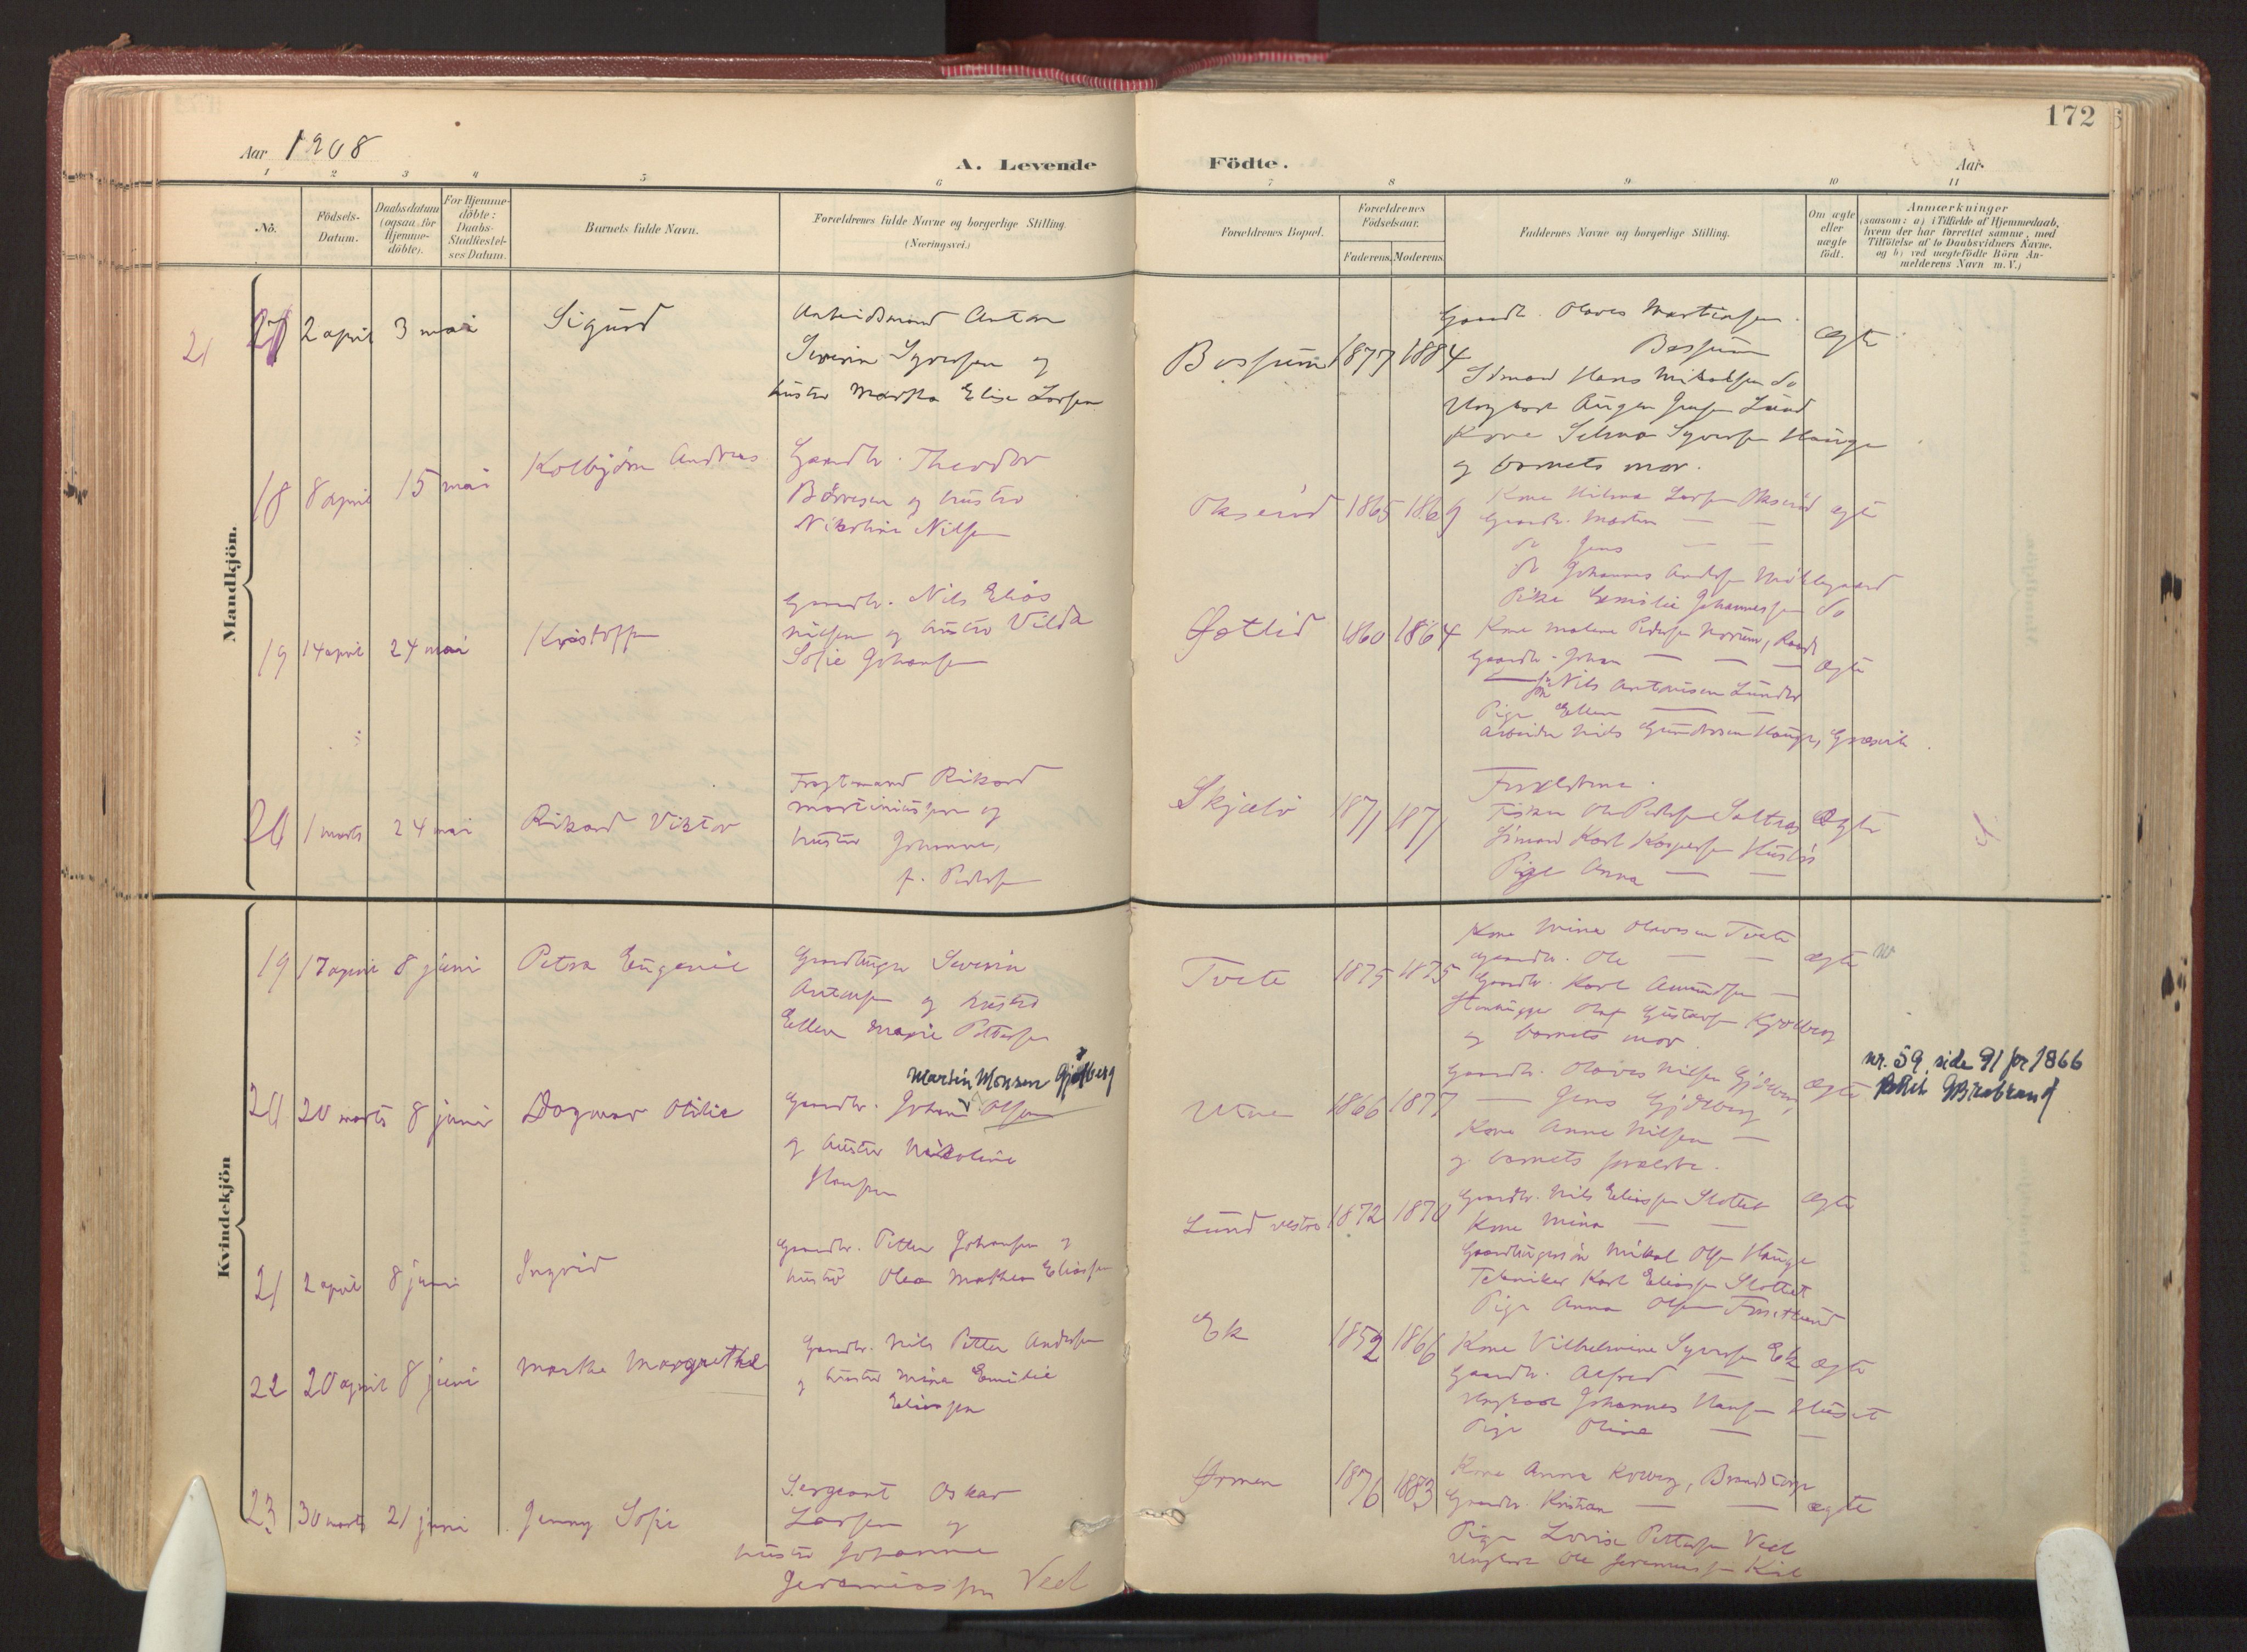 172
Aar 1908
A. Levende
Födte.
Aar
1 2 3 4 5 6 7 8 9 10 11
No.
Födsels-
Datum.
Daabsdatum
(ogsaa for
Hjemme-
döbte).
For Hjemme-
döbte:
Daabs-
Stadfæstel-
ses Datum.
Barnets fulde Navn.
Forældrenes fulde Navne og borgerlige Stilling
(Næringsvei.)
Forældrenes Bopæl.
Forældrenes
Födselsaar.
Faderens. Moderens.
Faddernes Navne og borgerlige Stilling.
Om ægte
eller
uægte
födt.
Anmærkninger
(saasom: a) i Tilfælde af Hjemmedaab,
hvem der har forrettet samme, med
Tilföielse af to Daabsvidners Navne,
og b) ved uægtefödte Börn An-
melderens Navn m. V.)
Mandkjön.
21
2 april 3 mai Sigurd
Arbeidsmand Anton
Severin Syversen og
hustru Martha Elise Larsen
1877 1884
Gaardbr. Olaves Martinsen
ægte
Sömand Hans Mikalsen do
Kone Selma Syversen Hauge
og barnets mor.
18 8 april 15 mai Kolbjörn Andreas
Gaardbr. Theodor
Börresen og hustru
Nikoline Nilsen
Okserød 1865 1869
Kone Hilma Larsen Okserød ægte
Gaardbr. Morten — —
do Jens — —
do Johannes Andersen
Pike Emilie Johannessen do
19 14 april 24 mai Kristoffer
Gaardbr. Nils Elias
Nilsen og hustru Vilda
Sofie Johansen
Østlid 1860 1864
Kone Malene Pedersen Norum,
Gaardbr. Johan — — — ægte
Nils Antonisen
Pige Ellen — —
Arbeider Nils Gundersen Hauge,
20 1 marts 24 mai Rikard Viktor
Fragtmand Rikard
Martiniussen og
hustru Johanne,
f. Pedersen
Skjælö 1871 1871
Forældrene.
Fisker Ole Pedersen ægte
Sömand Karl Kaspersen
Pige Anna — —
Kvindekjön
19 17 april 8 juni Petra Eugenie
Gaardbruger Severin
Antonsen og hustru
Ellen Marie Pettersen
Tvete 1875 1875
Kone Mina Olavesen Tvete
Gaardbr. Ole — — ægte
Gaardbr. Karl Amundsen —
Stenhugger Olaf Gustavsen
og barnets mor.
20 20 marts 8 juni Dagmar Otilie
Martin Monsen Gjølberg
Gaardbr. Johan Olsen
og hustru Nikoline
Hansen
1866 1877
Gaardbr. Olaves Nilsen Gjölberg ægte
— Jens Gjölberg
Kone Anne Nilsen —
og barnets forældre.
nr. 59, side 91 for 1866
21 2 april 8 juni Ingrid
Gaardbr. Petter Johansen og
hustru Olea Mathea Eliassen
Lund vestre 1872 1870
Gaardbr. Nils Eliassen Slottet ægte
Kone Mina — —
Gaardbrugersön Mikal Olsen Hauge
Tekniker Karl Eliassen Slottet
Pige Anna Olsen
22 20 april 8 juni Marthe Margrethe
Gaardbr. Nils Petter Andersen
og hustru Mina Emilie
Eliassen
Ek 1852 1866
Kone Vilhelmine Syversen Ek ægte
Gaardbr. Alfred — —
Ungkarl Johannes Hansen Huset
Pige Oline — —
23 30 marts 21 juni Jenny Sofie
Sergeant Oskar
Larsen og
hustru Johanne
Jeremiassen Veel
Ørmen 1876 1883
Kone Anna
Gaardbr. Kristian — — ægte
Pige Lovise Pettersen Veel
Ungkarl Ole Jeremiassen Kil